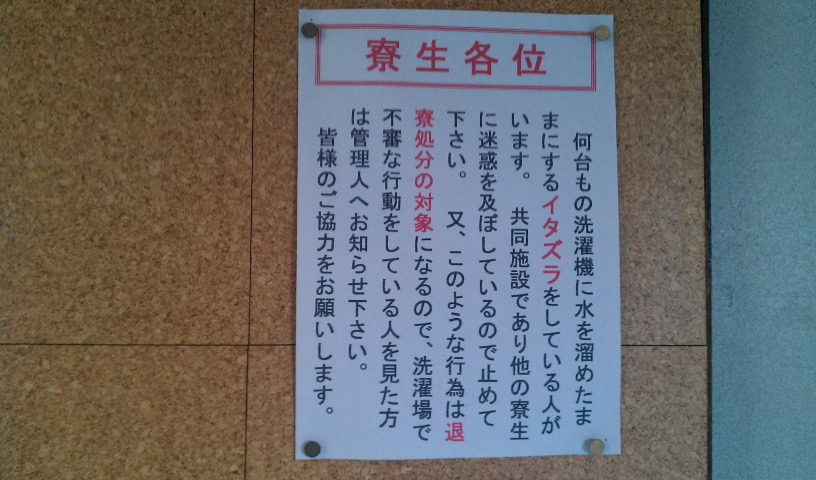 寮生各位
何台もの洗濯機に水を溜めたま
まにするイタズラをしている人が
います。　共同施設であり他の寮生
に迷惑を及ぼしているので止めて
下さい。　又、このような行為は退
寮処分の対象になるので、洗濯場で
不審な行動をしている人を見た方
は管理人へお知らせ下さい。
皆様のご協力をお願いします。